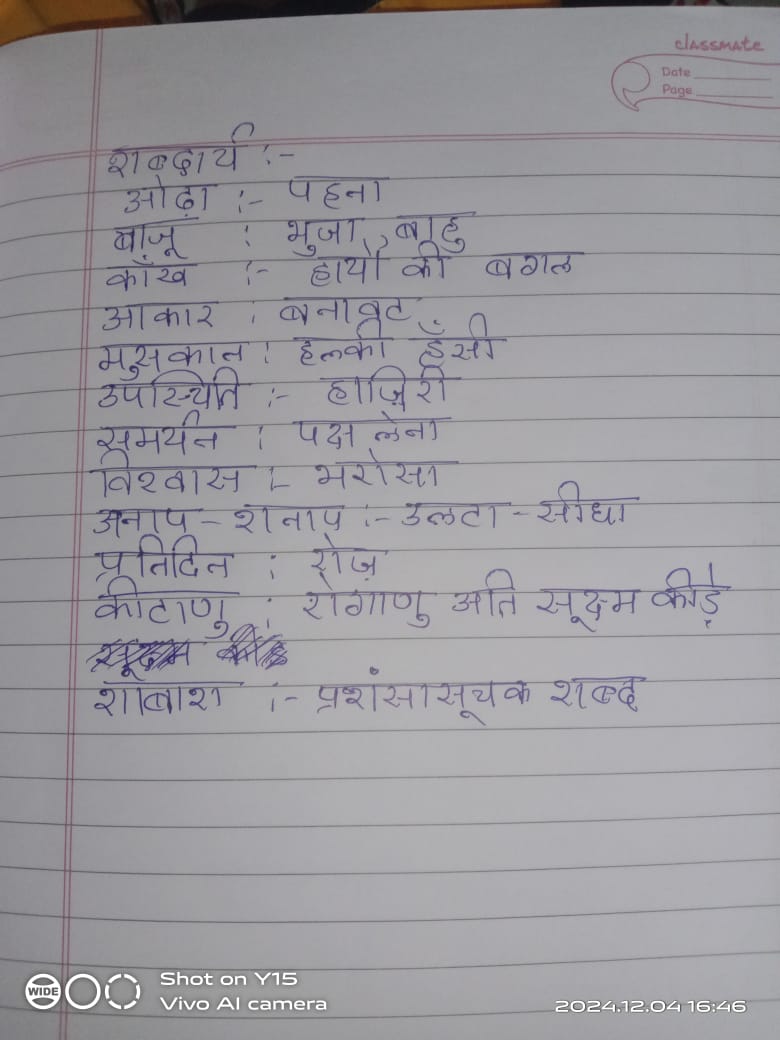 classmate
Date
Page
शब्दार्थ :-
ओढ़ा :- पहना
बाजू : भुजा, बाहु
काँख :- हाथों की बगल
आकार : बनावट
मुसकान : हलकी हँसी
उपस्थिति :- हाज़िरी
समर्थन : पक्ष लेना
विश्वास :- भरोसा
अनाप-शनाप :- उलटा-सीधा
प्रतिदिन : रोज़
कीटाणु : रोगाणु अति सूक्ष्म कीड़े
शाबाश :- प्रशंसासूचक शब्द
WIDE
Shot on Y15
Vivo AI camera
2024.12.04 16:46